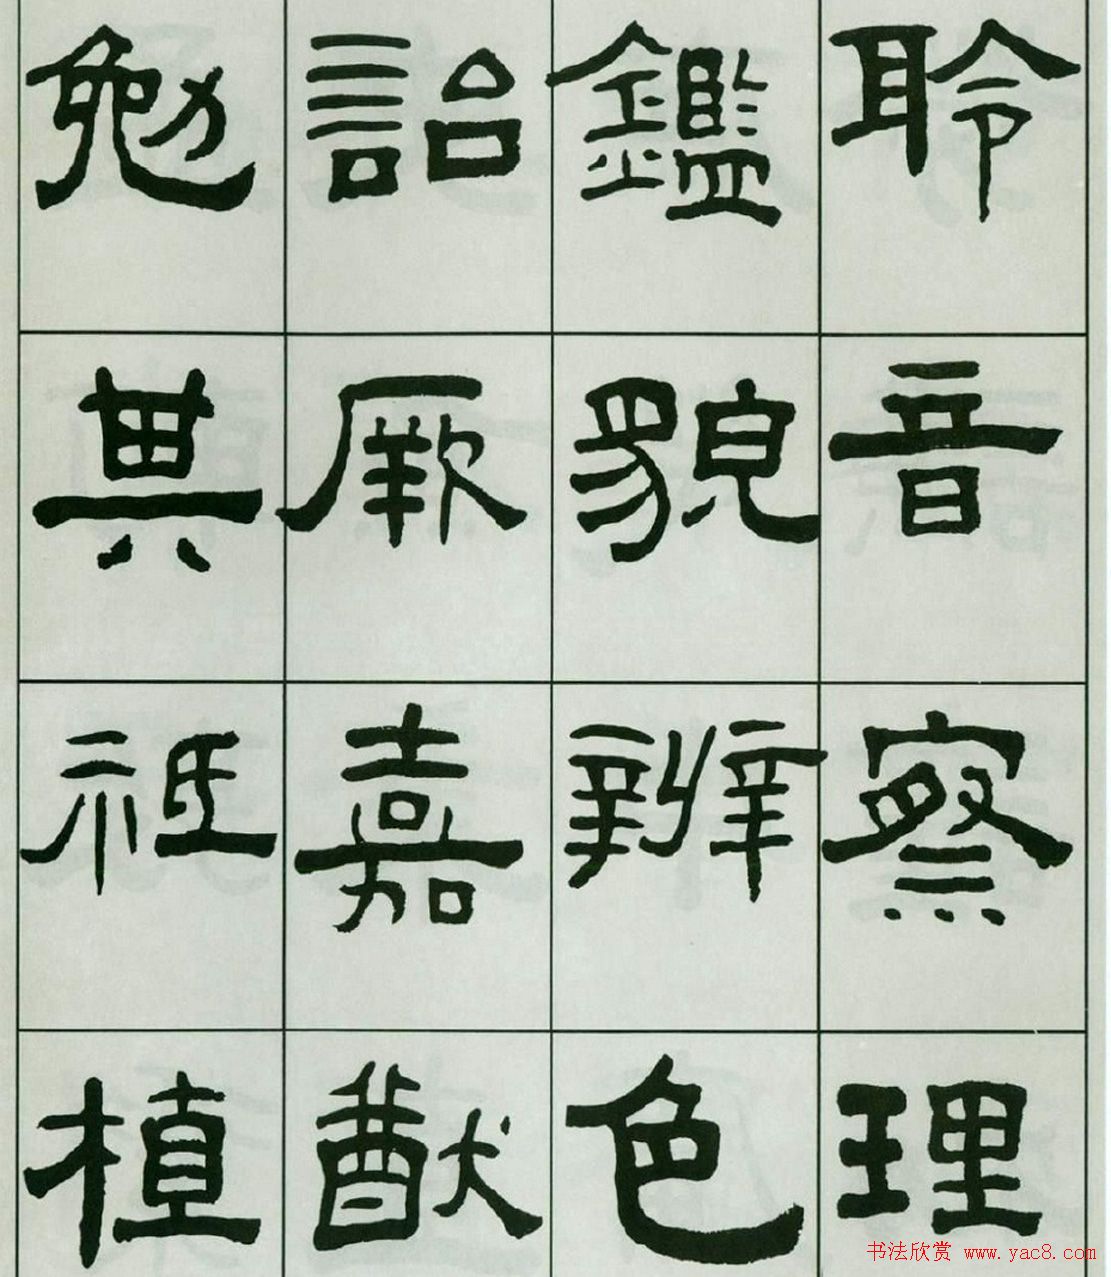 聆音察理
鑑貌辨色
詒厥嘉猷
勉其祗植
书法欣赏 www.yac8.com